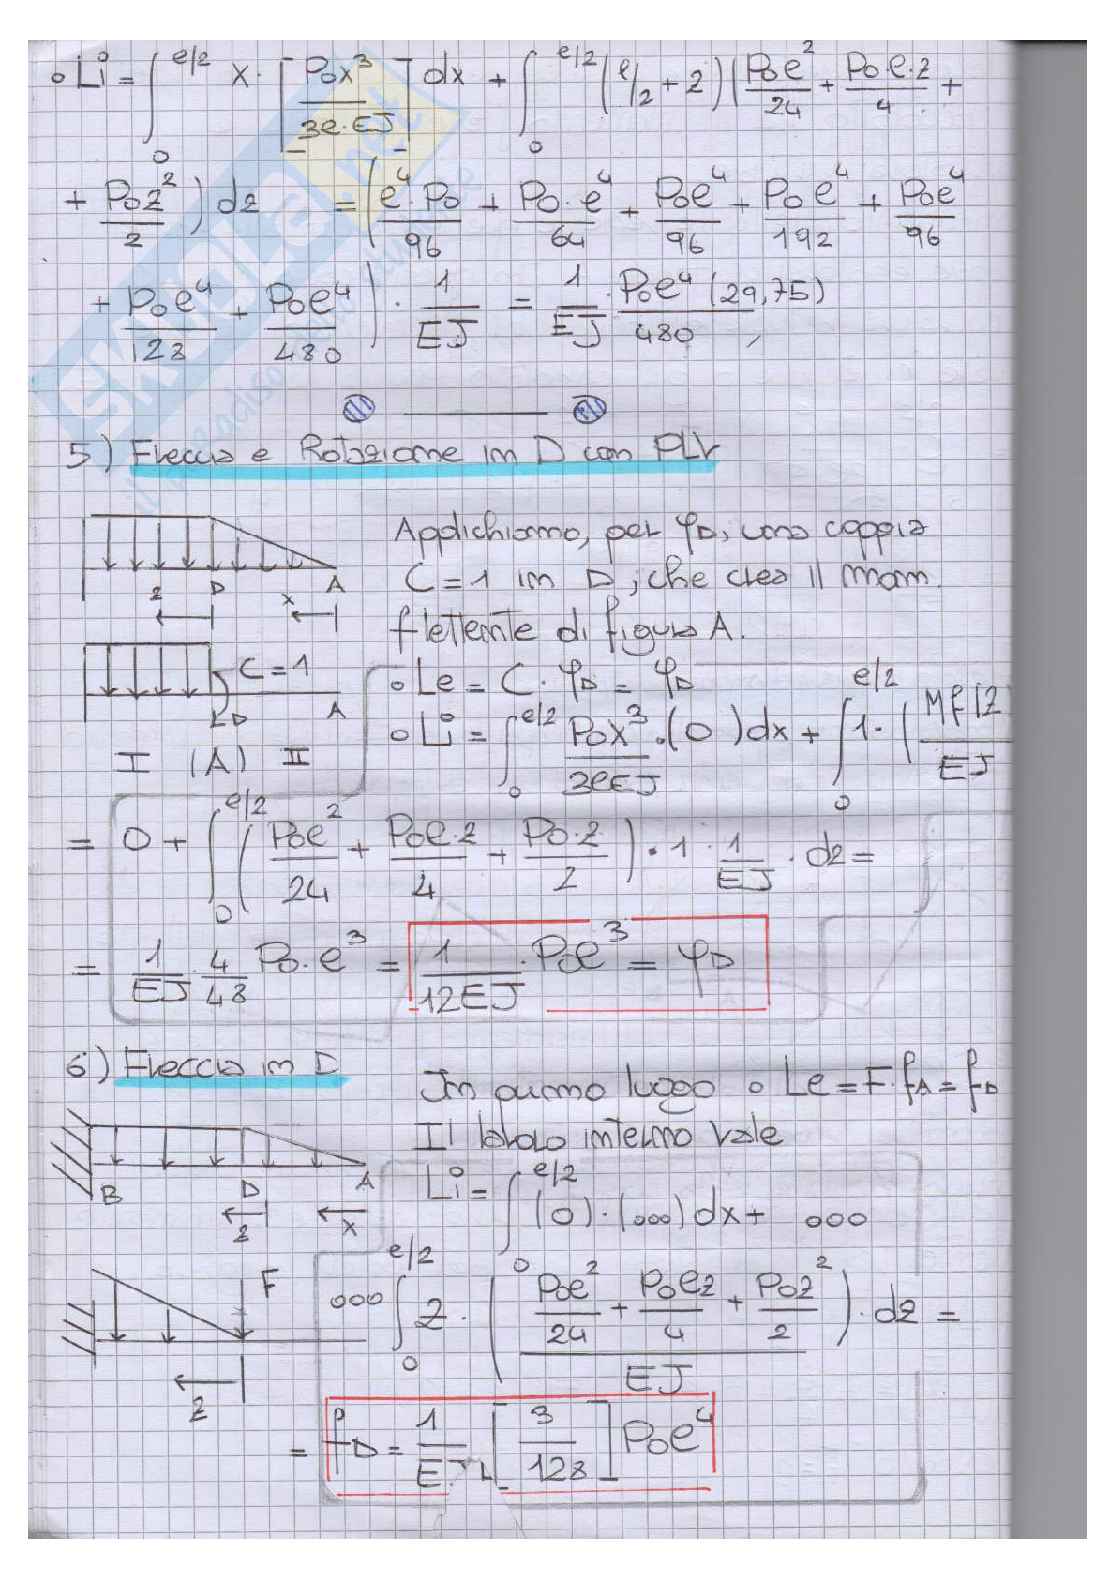 ∘ Li = ∫₀^{e/2} x · [P₀x³ / 3e·EJ] dx + ∫₀^{e/2} (e/2 + z) (P₀e²/24 + P₀·e·z/4 +
+ P₀z²/2) dz = (e⁴·P₀/96 + P₀·e⁴/64 + P₀e⁴/96 + P₀e⁴/192 + P₀e⁴/96
+ P₀e⁴/128 + P₀e⁴/480) · 1/EJ = 1/EJ · P₀e⁴/480 (29,75)
5) Freccia e Rotazione in D con PLV
Applichiamo, per φD, una coppia
C = 1 in D, che crea il mom.
flettente di figura A.
z D x A
C = 1
D A
I (A) II
∘ Le = C · φD = φD
∘ Li = ∫₀^{e/2} P₀x³/3eEJ · (0) dx + ∫₀^{e/2} 1 · (Mf(z / EJ
= 0 + ∫₀^{e/2} (P₀e²/24 + P₀e·z/4 + P₀·z/2) · 1 · 1/EJ · dz =
= 1/EJ · 4/48 P₀·e³ = 1/12EJ · P₀e³ = φD
6) Freccia in D
In primo luogo ∘ Le = F·fA = fD
Il lavoro interno vale
B D A
z x
Li = ∫₀^{e/2} (0)·(∘∘∘) dx + ∘∘∘
F
z
∘∘∘ ∫₀^{e/2} z · (P₀e²/24 + P₀ez/4 + P₀z²/2 / EJ) · dz =
= fD = 1/EJ [3/128] P₀e⁴